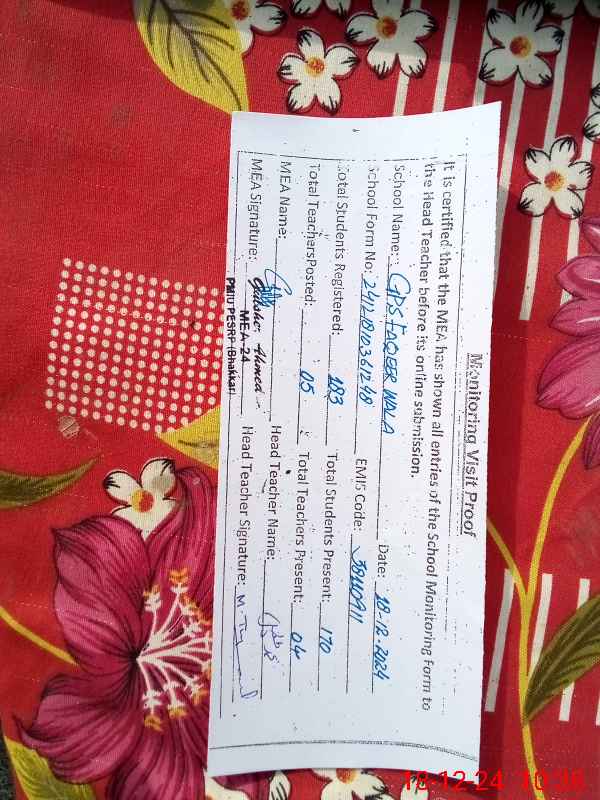 Monitoring Visit Proof
It is certified that the MEA has shown all entries of the School Monitoring Form to
the Head Teacher before its online submission.
School Name: GPS FAQEER WALA Date: 18-12-2024
School Form No: EMIS Code: 38140911
Total Students Registered: 183 Total Students Present: 170
Total TeachersPosted: 05 Total Teachers Present: 04
MEA Name: Ahmed Head Teacher Name:
MEA Signature: MEA-24 Head Teacher Signature:
PMIU PESRP (Bhakkar)
18-12-24 10:36